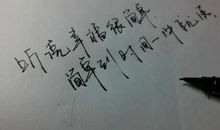 听说幸福很简单
简单到时间一晔就溟